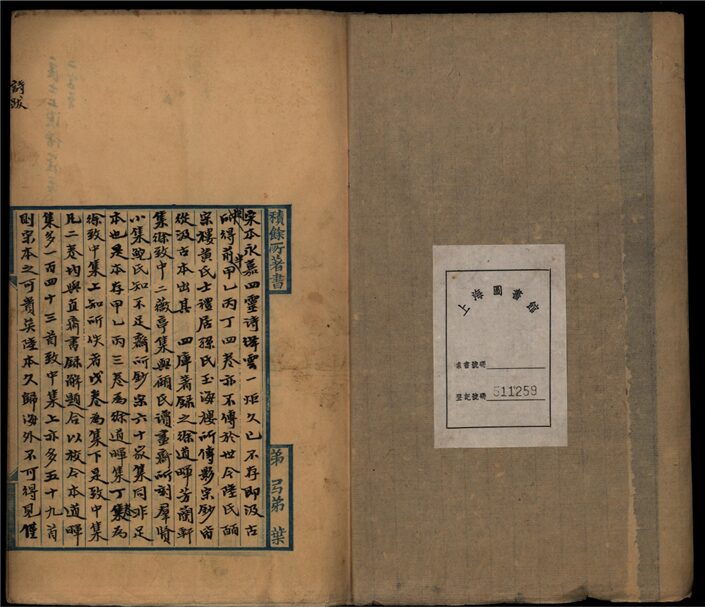 上海圖書館
索書號碼
登記號碼 511259
積餘所著書
第 弓第 葉
宋本永嘉四靈詩絳雲一炬久已不存即汲古
所得前甲乙丙丁四卷亦不傳於世今陸氏皕
宋樓黃氏士禮居孫氏玉海樓所傳影宋鈔皆
從汲古本出其 四庫著錄之徐道暉芳蘭軒
集徐致中二薇亭集與顧氏讀畫齋所刻羣賢
小集鮑氏知不足齋所鈔宋六十家集同非足
本也是本存甲乙丙三卷為徐道暉集丁集為
徐致中集上知所佚者戊卷為集下是致中集
凡二卷均與直齋書錄解題合以校今本道暉
集多一百四十三首致中集上亦多五十九首
則宋本之可貴矣陸本久歸海外不可得見僅
詩跋